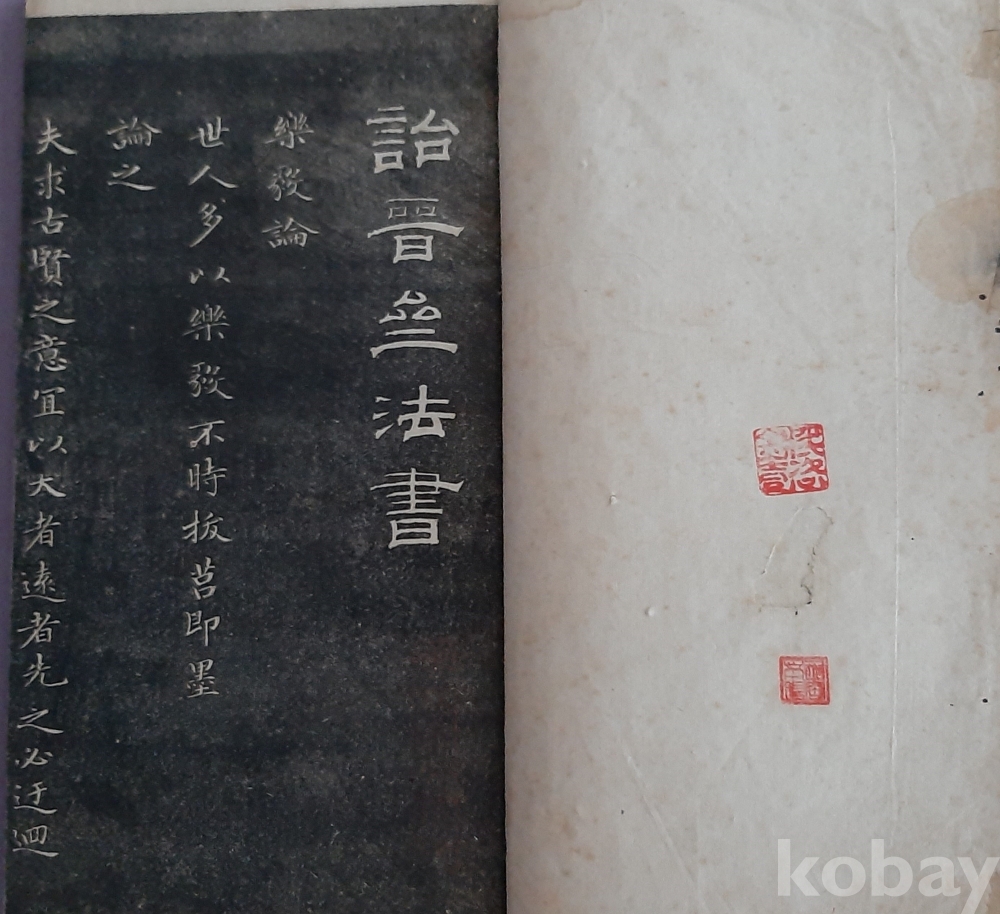 詒晉叁法書
樂毅論
世人多以樂毅不時拔莒即墨
論之
夫求古賢之意宜以大者遠者先之必迂迴
kobay